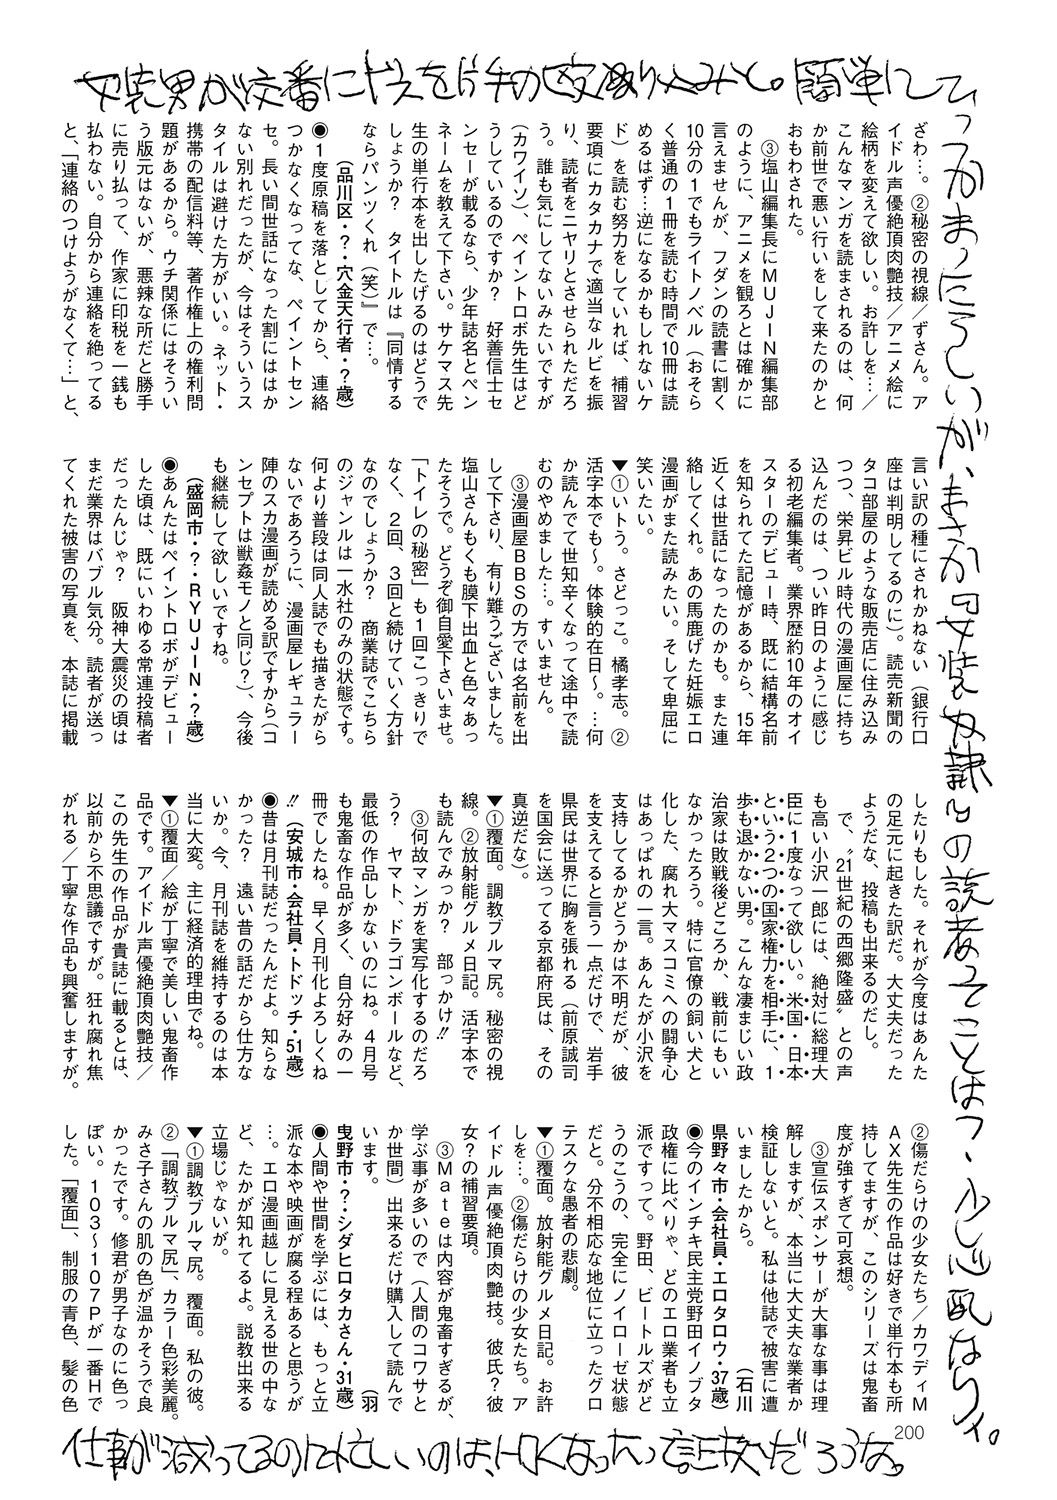 女装男が交番にドスを片手の殴り込みと。簡単にひ
っつかまったらしいが、まさか女装奴隷の読者ってことは？少し心配なり。
ざわ…。②秘密の視線／ずさん。ア
イドル声優絶頂肉艶技／アニメ絵に
絵柄を変えて欲しい。お許しを…／
こんなマンガを読まされるのは、何
か前世で悪い行いをして来たのかと
おもわされた。
③塩山編集長にＭＵＪＩＮ編集部
のように、アニメを観ろとは確かに
言えませんが、フダンの読書に割く
10分の1でもライトノベル（おそら
く普通の1冊を読む時間で10冊は読
めるはず…逆になるかもしれないケ
ド）を読む努力をしていれば、補習
要項にカタカナで適当なルビを振
り、読者をニヤリとさせられただろ
う。誰も気にしてないみたいですが
（カワイソ）、ペイントロボ先生はど
うしているのですか？　好善信士セ
ンセーが載るなら、少年誌名とペン
ネームを教えて下さい。サケマス先
生の単行本を出したげるのはどうで
しょうか？　タイトルは『同情する
ならパンツくれ（笑）』で…。
（品川区・？・穴金天行者・？歳）
◉1度原稿を落としてから、連絡
つかなくなってな、ペイントセン
セ。長い間世話になった割にははか
ない別れだったが、今はそういうス
タイルは避けた方がいい。ネット・
携帯の配信料等、著作権上の権利問
題があるから。ウチ関係にはそうい
う版元はないが、悪辣な所だと勝手
に売り払って、作家に印税を一銭も
払わない。自分から連絡を絶ってる
と、「連絡のつけようがなくて…」と、
言い訳の種にされかねない（銀行口
座は判明してるのに）。読売新聞の
タコ部屋のような販売店に住み込み
つつ、栄昇ビル時代の漫画屋に持ち
込んだのは、つい昨日のように感じ
る初老編集者。業界歴約10年のオイ
スターのデビュー時、既に結構名前
を知られてた記憶があるから、15年
近くは世話になったのかも。また連
絡してくれ。あの馬鹿げた妊娠エロ
漫画がまた読みたい。そして卑屈に
笑いたい。
▼①いトう。さどっこ。橘孝志。②
活字本でも～。体験的在日～。…何
か読んでて世知辛くなって途中で読
むのやめました…。すいません。
③漫画屋ＢＢＳの方では名前を出
して下さり、有り難うございました。
塩山さんもくも膜下出血と色々あっ
たそうで。どうぞ御自愛下さいませ。
「トイレの秘密」も1回こっきりで
なく、2回、3回と続けていく方針
なのでしょうか？　商業誌でこちら
のジャンルは一水社のみの状態です。
何より普段は同人誌でも描きたがら
ないであろうに、漫画屋レギュラー
陣のスカ漫画が読める訳ですから（コ
ンセプトは獣姦モノと同じ？）、今後
も継続して欲しいですね。
（盛岡市・？・ＲＹＵＪＩＮ・？歳）
◉あんたはペイントロボがデビュー
した頃は、既にいわゆる常連投稿者
だったんじゃ？　阪神大震災の頃は
まだ業界はバブル気分。読者が送っ
てくれた被害の写真を、本誌に掲載
したりもした。それが今度はあんた
の足元に起きた訳だ。大丈夫だった
ようだな、投稿も出来るのだし。
で、“21世紀の西郷隆盛”との声
も高い小沢一郎には、絶対に総理大
臣に1度なって欲しい。米国・日本
という2つの国家権力を相手に、1
歩も退かない男。こんな凄まじい政
治家は敗戦後どころか、戦前にもい
なかったろう。特に官僚の飼い犬と
化した、腐れ大マスコミへの闘争心
はあっぱれの一言。あんたが小沢を
支持してるかどうかは不明だが、彼
を支えてると言う一点だけで、岩手
県民は世界に胸を張れる（前原誠司
を国会に送ってる京都府民は、その
真逆だな）。
▼①覆面。調教ブルマ尻。秘密の視
線。②放射能グルメ日記。活字本で
も読んでみっか？　部っかけ!!
③何故マンガを実写化するのだろ
う？　ヤマト、ドラゴンボールなど、
最低の作品しかないのにね。4月号
も鬼畜な作品が多く、自分好みの一
冊でしたね。早く月刊化よろしくね
!!　（安城市・会社員・トドッチ・51歳）
◉昔は月刊誌だったんだよ。知らな
かった？　遠い昔の話だから仕方な
いか。今、月刊誌を維持するのは本
当に大変。主に経済的理由でね。
▼①覆面／絵が丁寧で美しい鬼畜作
品です。アイドル声優絶頂肉艶技／
この先生の作品が貴誌に載るとは、
以前から不思議ですが。狂れ腐れ焦
がれる／丁寧な作品も興奮しますが。
②傷だらけの少女たち／カワディＭ
ＡＸ先生の作品は好きで単行本も所
持してますが、このシリーズは鬼畜
度が強すぎて可哀想。
③宣伝スポンサーが大事な事は理
解しますが、本当に大丈夫な業者か
検証しないと。私は他誌で被害に遭
いましたから。　（石川
県野々市・会社員・エロタロウ・37歳）
◉今のインチキ民主党野田イノブタ
政権に比べりゃ、どのエロ業者も立
派ですって。野田、ビートルズがど
うのこうの、完全にノイローゼ状態
だと。分不相応な地位に立ったグロ
テスクな愚者の悲劇。
▼①覆面。放射能グルメ日記。お許
しを…。②傷だらけの少女たち。ア
イドル声優絶頂肉艶技。彼氏？彼
女？の補習要項。
③Ｍａｔｅは内容が鬼畜すぎるが、
学ぶ事が多いので（人間のコワサと
か世間）出来るだけ購入して読んで
います。　（羽
曳野市・？・シダヒロタカさん・31歳）
◉人間や世間を学ぶには、もっと立
派な本や映画が腐る程あると思うが
…。エロ漫画越しに見える世の中な
ど、たかが知れてるよ。説教出来る
立場じゃないが。
▼①調教ブルマ尻。覆面。私の彼。
②「調教ブルマ尻」、カラー色彩美麗。
みさ子さんの肌の色が温かそうで良
かったです。修君が男子なのに色っ
ぽい。103～107Ｐが一番Ｈで
した。「覆面」、制服の青色、髪の色
200
仕事が減ってるのに忙しいのは、トロくなったって証拠だろうな。